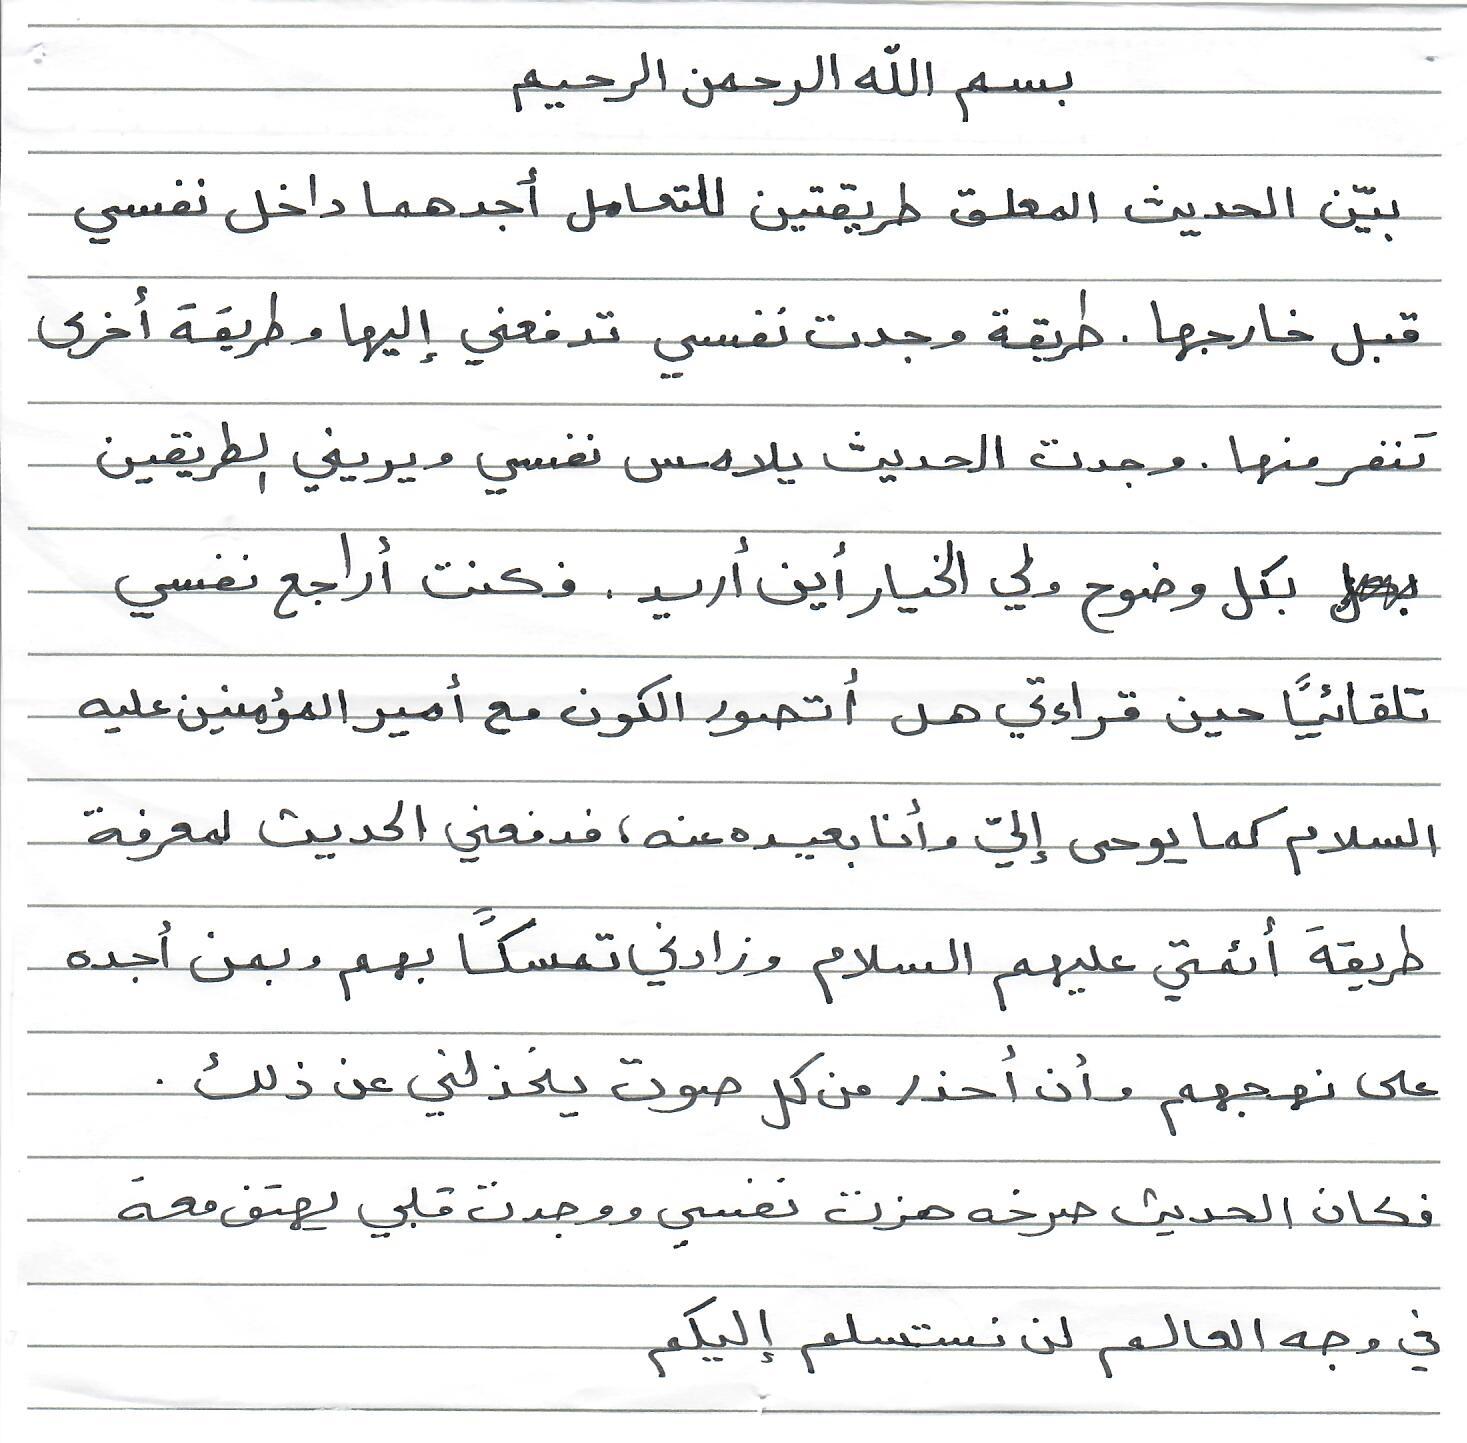 بسم الله الرحمن الرحيم
بيّن الحديث المعلق طريقتين للتعامل أجدهما داخل نفسي
قبل خارجها . طريقة وجدت نفسي تدفعني إليها وطريقة أخرى
تنفر منها . وجدت الحديث يلامس نفسي ويريني الطريقين
بكل وضوح ولي الخيار أين أريد . فكنت أراجع نفسي
تلقائيًا حين قراءتي هل أتصور الكون مع أمير المؤمنين عليه
السلام كما يوحى إليّ وأنا بعيده عنه ، فدفعني الحديث لمعرفة
طريقة أئمتي عليهم السلام وزادني تمسكًا بهم وبمن أجده
على نهجهم وأن أحذر من كل صوت يخذلني عن ذلك .
فكان الحديث صرخه هزت نفسي ووجدت قلبي يهتف معة
في وجه العالم لن نستسلم إليكم